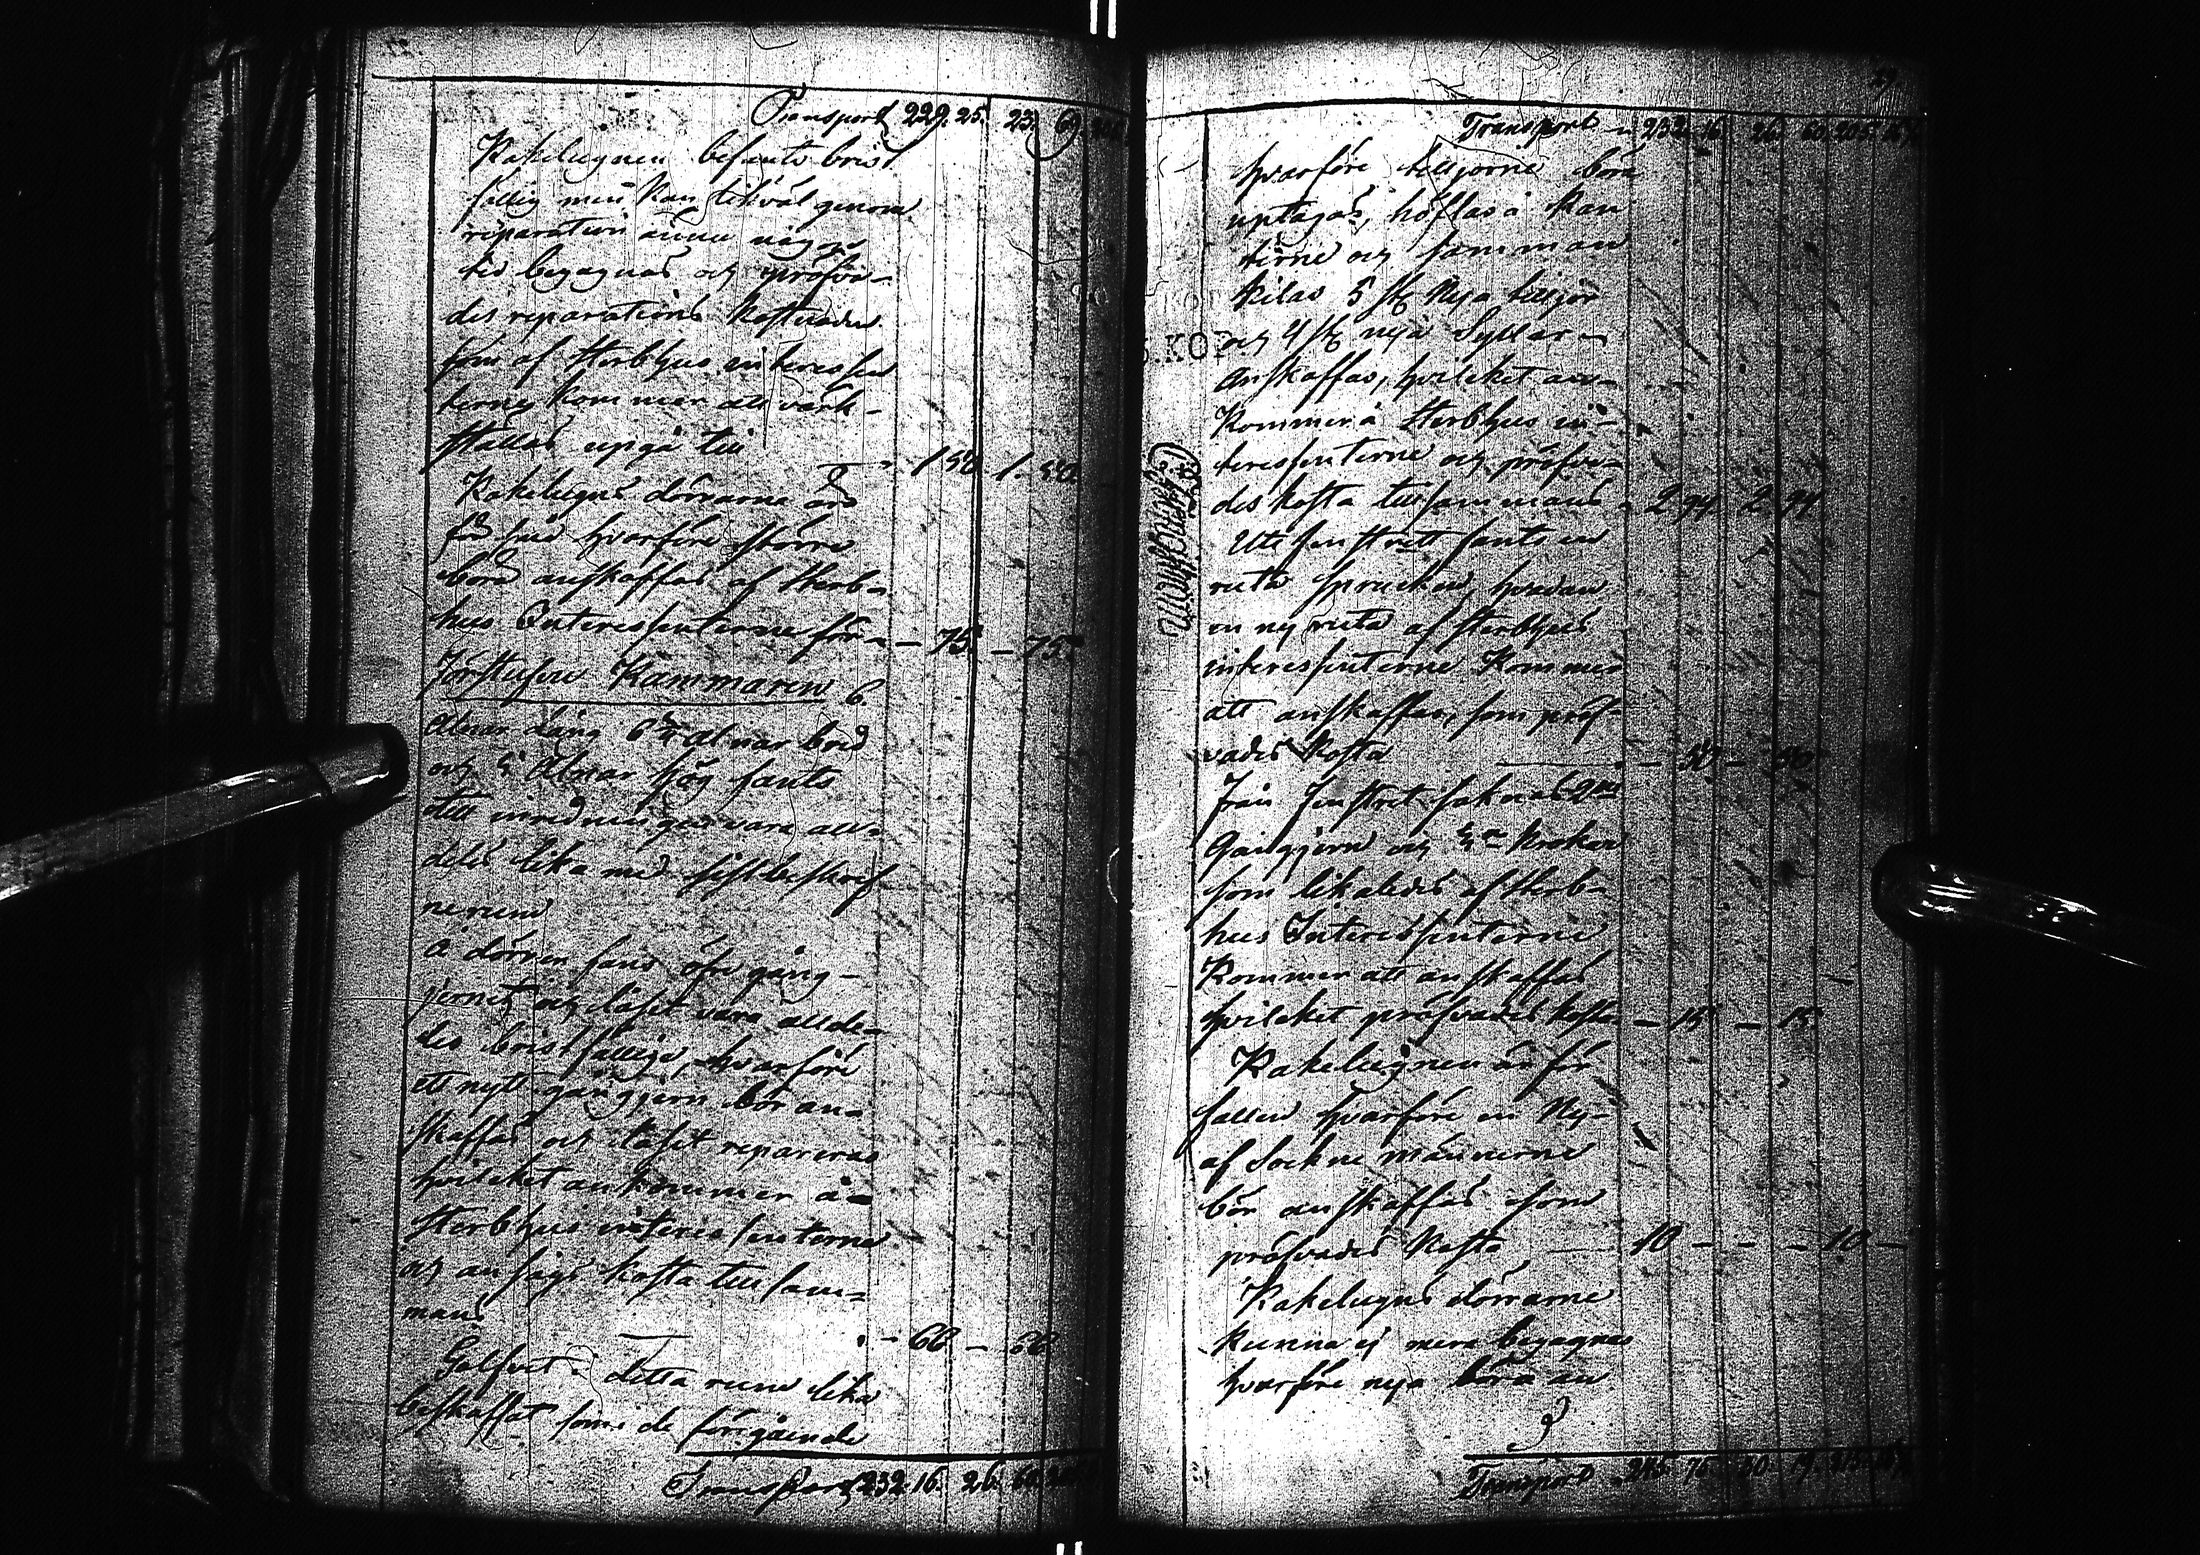 Transport 229. 25. 23. 69.
Kakelugnen befants brist
fällig men kan likväl genom
reparation ännu någon
tid begagnas och pröfva-
des reparations kostnaden
som af Sterbhus interessen
terne kommer att värk-
ställas upgå till 1 50 1. 50.
Kakelugns dörrarne äro
för små hvarföre större
böra anskaffas af Sterb-
hus Interessenterne för - 75 - 75.
Förstufvu Kammaren 6.
Alnar Lång 6 3/4 Alnar bred
och 4 Alnar hög fants
till inredningen vara all-
deles lika med sist beskref
ne rum
Å dörren fans öfre gång-
jernet och låset vara allde-
les bristfällige, hvarföre
ett nytt gångjern bör an-
skaffas och låset repareras
hvilcket ankommer å
Sterbhus interessenterne
och ansågs kosta tillsam-
mans - 66 - 66
Golfvet i detta rum lika
beskaffat som i de föregående
Transport 232. 16. 26. 60.
Transport 232. 16. 26. 60. 205.
hvarföre tilljorne böra
uptagas, höflas i kan
terne och samman
kilas 5 st nya tilljor
och 4 st nya Syllar
anskaffas, hvilcket an-
kommer å Sterbhus in-
teressenterne och pröfva-
des kosta tillsammans 2 94 2 94
Ute fenstret fants en
ruta sprucken, hvadan
en ny ruta af Sterbhus
interessenterne kommer
att anskaffas, som pröf-
vades kosta - 50 - 50
Från Fenstret saknas 2ne
Gångjern och 4ra krokar
som likaledes af Sterb-
hus Interessenterne
kommer att anskaffas
hvilcket pröfvades kosta - 15 - 15.
Kakelugnen är för
fallen hvarföre en Ny-
af Sockne männerne
bör anskaffas som
pröfvades kosta 10 - - - 10 -
Kakelugns dörrarne
kunna ej mera begagnas
hvarföre nya böra an
Transport 245. 75. 30. 19. 215.